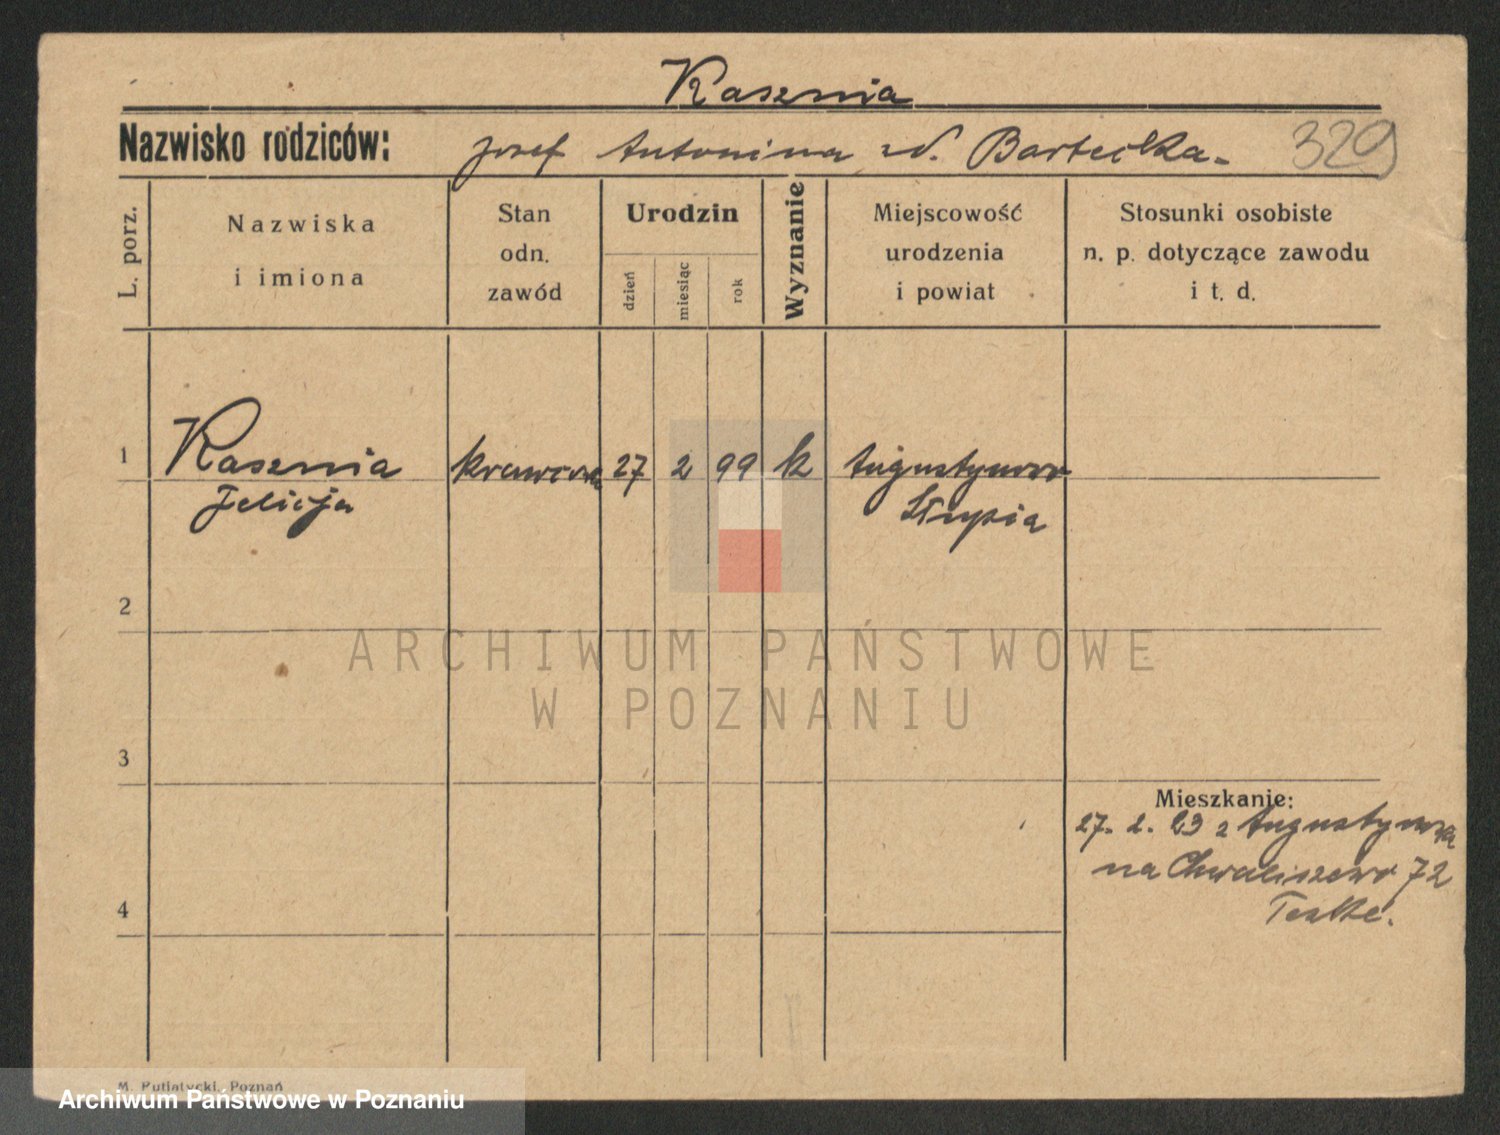 Kasznia
Nazwisko rodziców: Josef Antonina zd. Bartecka. 329
L. porz.
Nazwiska i imiona
Stan odn. zawód
Urodzin
dzień
miesiąc
rok
Wyznanie
Miejscowość urodzenia i powiat
Stosunki osobiste n. p. dotyczące zawodu i t. d.
1 Kasznia krawcowa 27 2 99 k Augustynowo
Felicja Słupia
2
ARCHIWUM PAŃSTWOWE
W POZNANIU
3
Mieszkanie:
27. 2. 23 z
na Chwaliszewo 72
Teske.
4
M. Putiatycki, Poznań
Archiwum Państwowe w Poznaniu